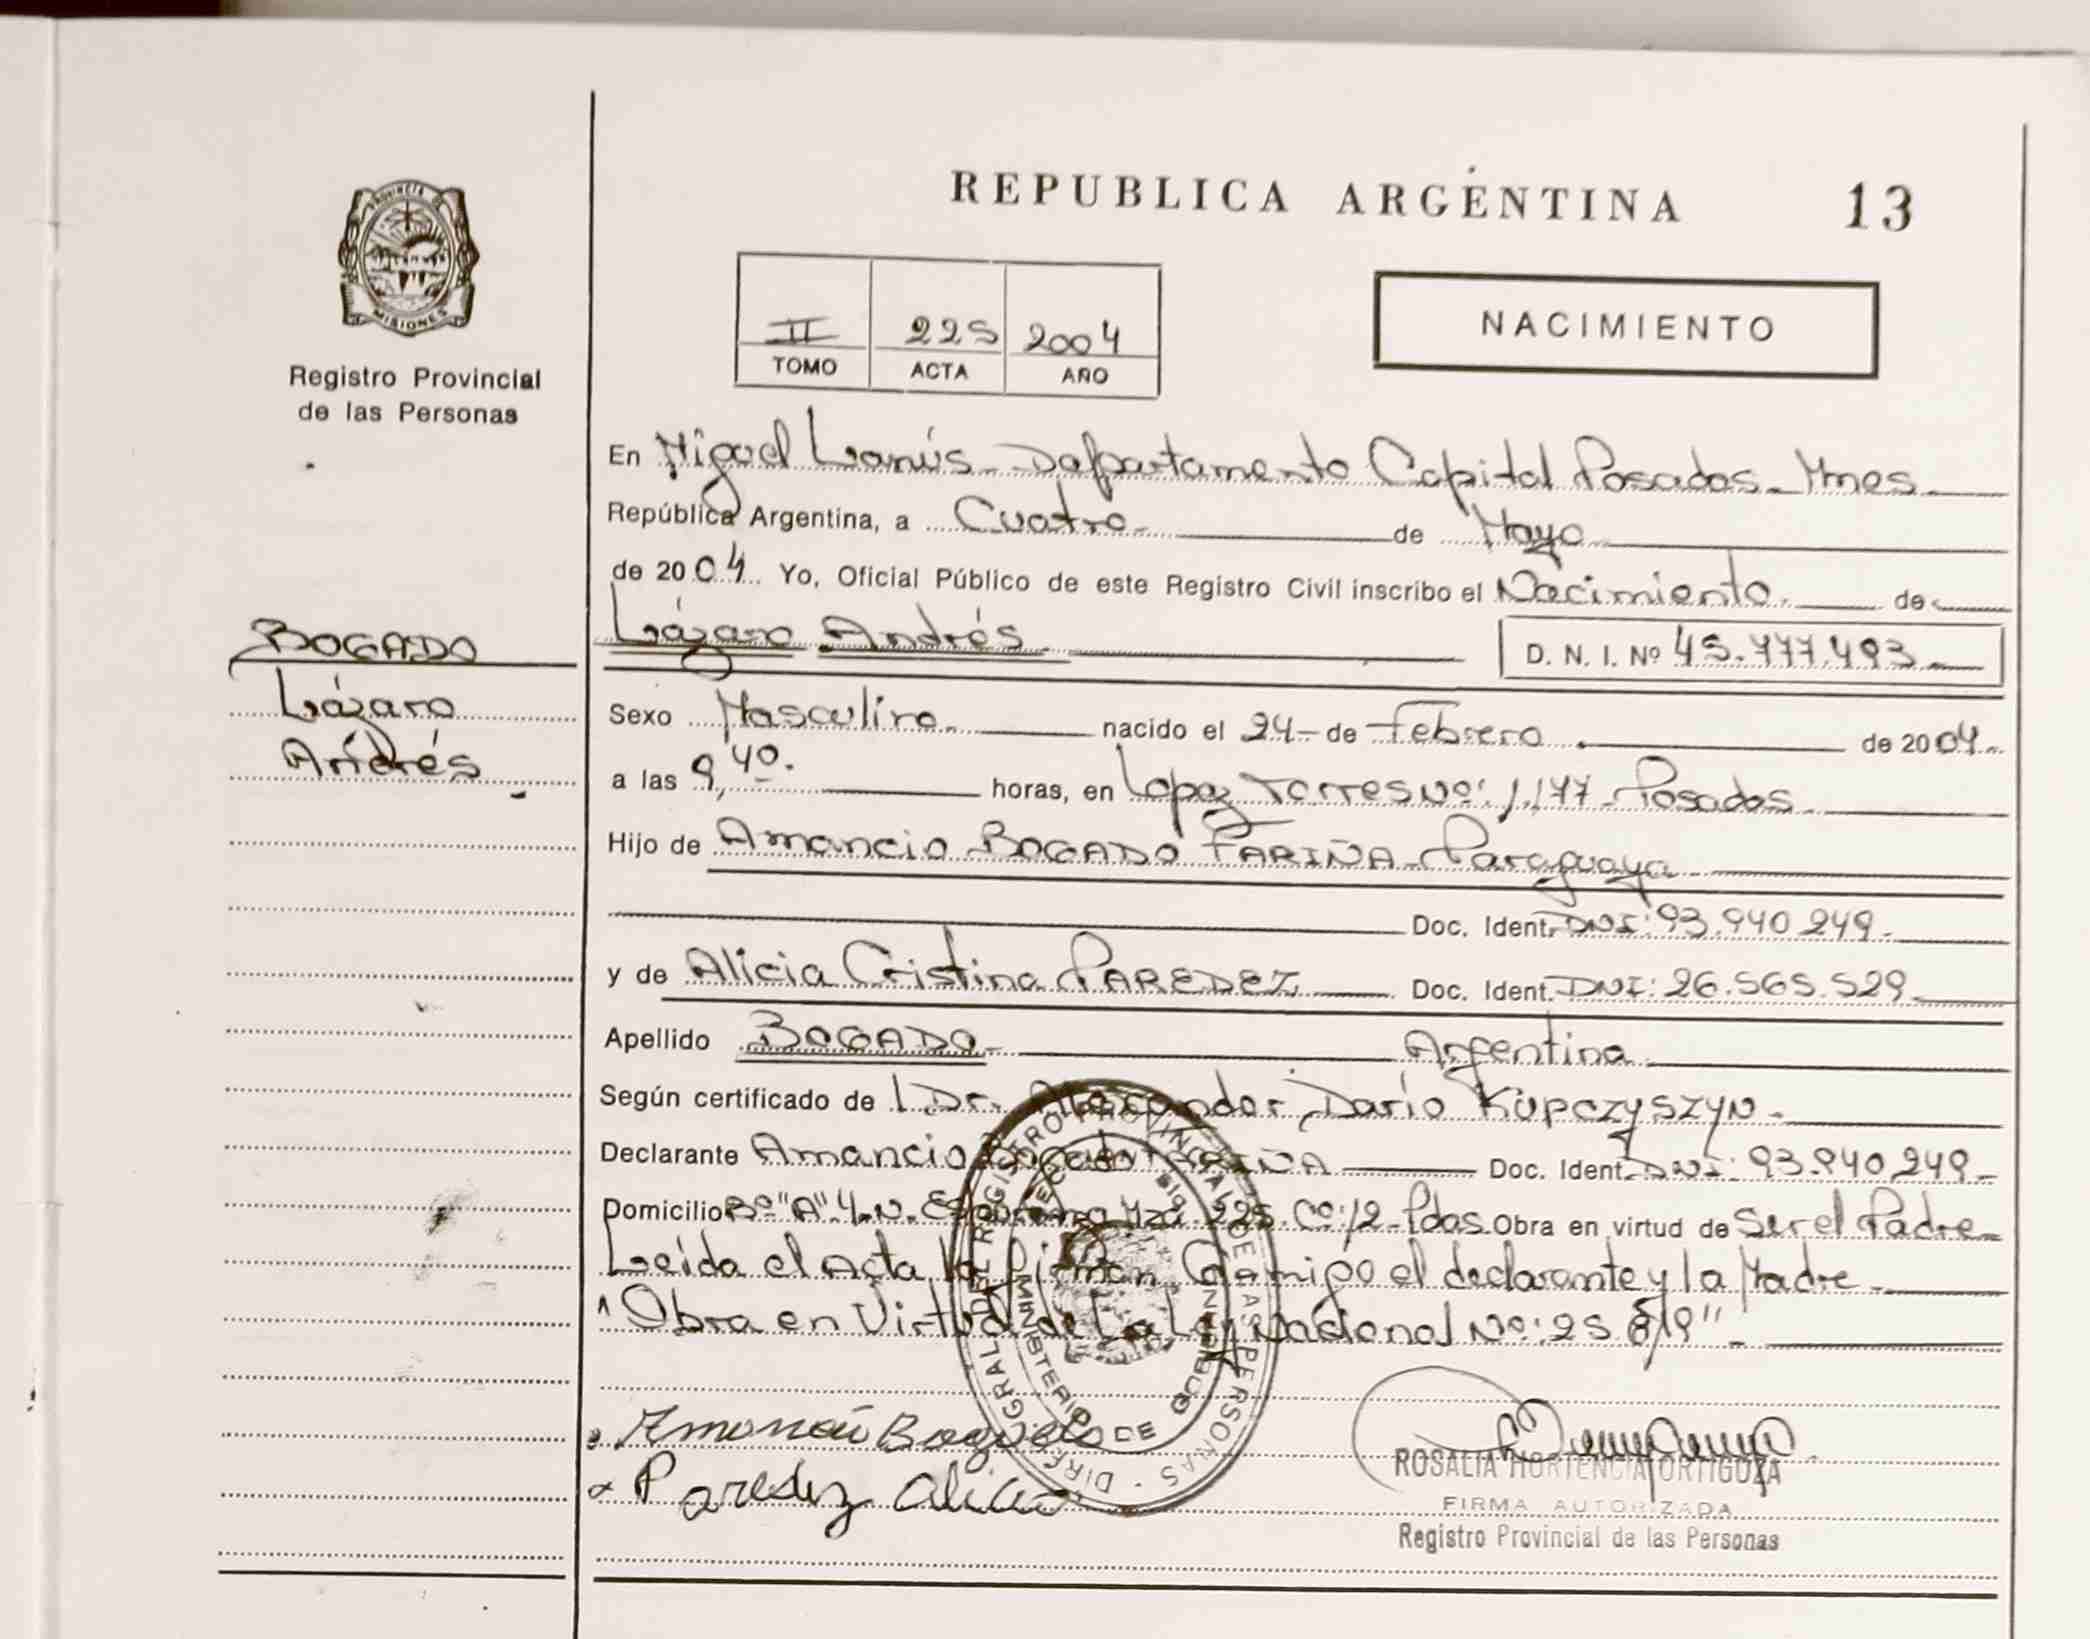 REPUBLICA ARGENTINA 13
PROVINCIA DE
MISIONES
Registro Provincial
de las Personas
II 225 2004
TOMO ACTA AÑO
NACIMIENTO
En Miguel Lanús - Departamento Capital Posadas - Mnes
República Argentina, a Cuatro de Mayo
de 2004. Yo, Oficial Público de este Registro Civil inscribo el Nacimiento de
BOGADO
Lázaro
Andrés
Lázaro Andrés D. N. I. Nº 45.777.493
Sexo Masculino nacido el 24 - de Febrero de 2004
a las 9,40. horas, en Lopez Torres Nº: 1.177 - Posadas
Hijo de Amancio BOGADO FARIÑA - Paraguaya
Doc. Ident. DNI: 93.940.249
y de Alicia Cristina PAREDEZ Doc. Ident. DNI: 26.565.529
Apellido BOGADO Argentina
Según certificado de Dr. Alexander Darío KUPCZYSZYN
Declarante Amancio Bogado FARIÑA Doc. Ident. DNI: 93.940.249
Domicilio Bº "A" 4. N. Mza. 225. Cº: 12 - Pdas Obra en virtud de Ser el Padre
Leida el Acta la firman Conmigo el declarante y la Madre
"Obra en Virtud de La Ley Nacional Nº: 25.819"
Bogado
Paredez Alicia
DIRECCION GRAL DEL REGISTRO PROVINCIAL DE LAS PERSONAS
MINISTERIO DE GOBIERNO
ROSALIA HORTENCIA ORTIGOZA
FIRMA AUTORIZADA
Registro Provincial de las Personas